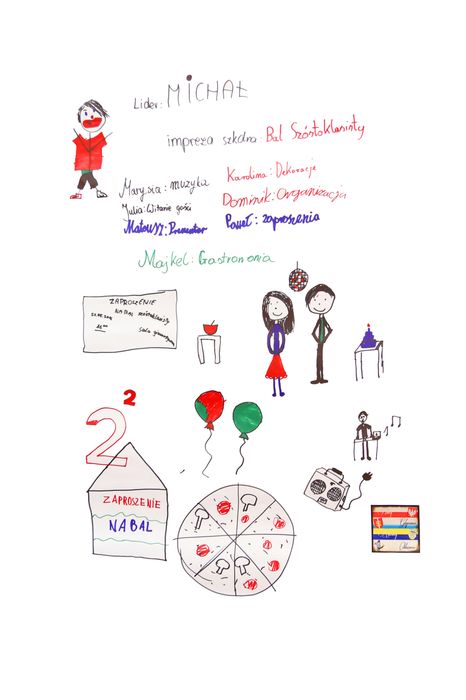 Lider: MICHAŁ
impreza szkolna: Bal Szóstoklasisty
Marysia: muzyka
Karolina: Dekoracje
Julia: Witanie gości
Dominik: Organizacja
Mateusz: Prezenter
Paweł: zaproszenia
Majkel: Gastronomia
ZAPROSZENIE
NA BAL szóstoklasisty
Sala gimnastyczna
2
2
ZAPROSZENIE
NA BAL